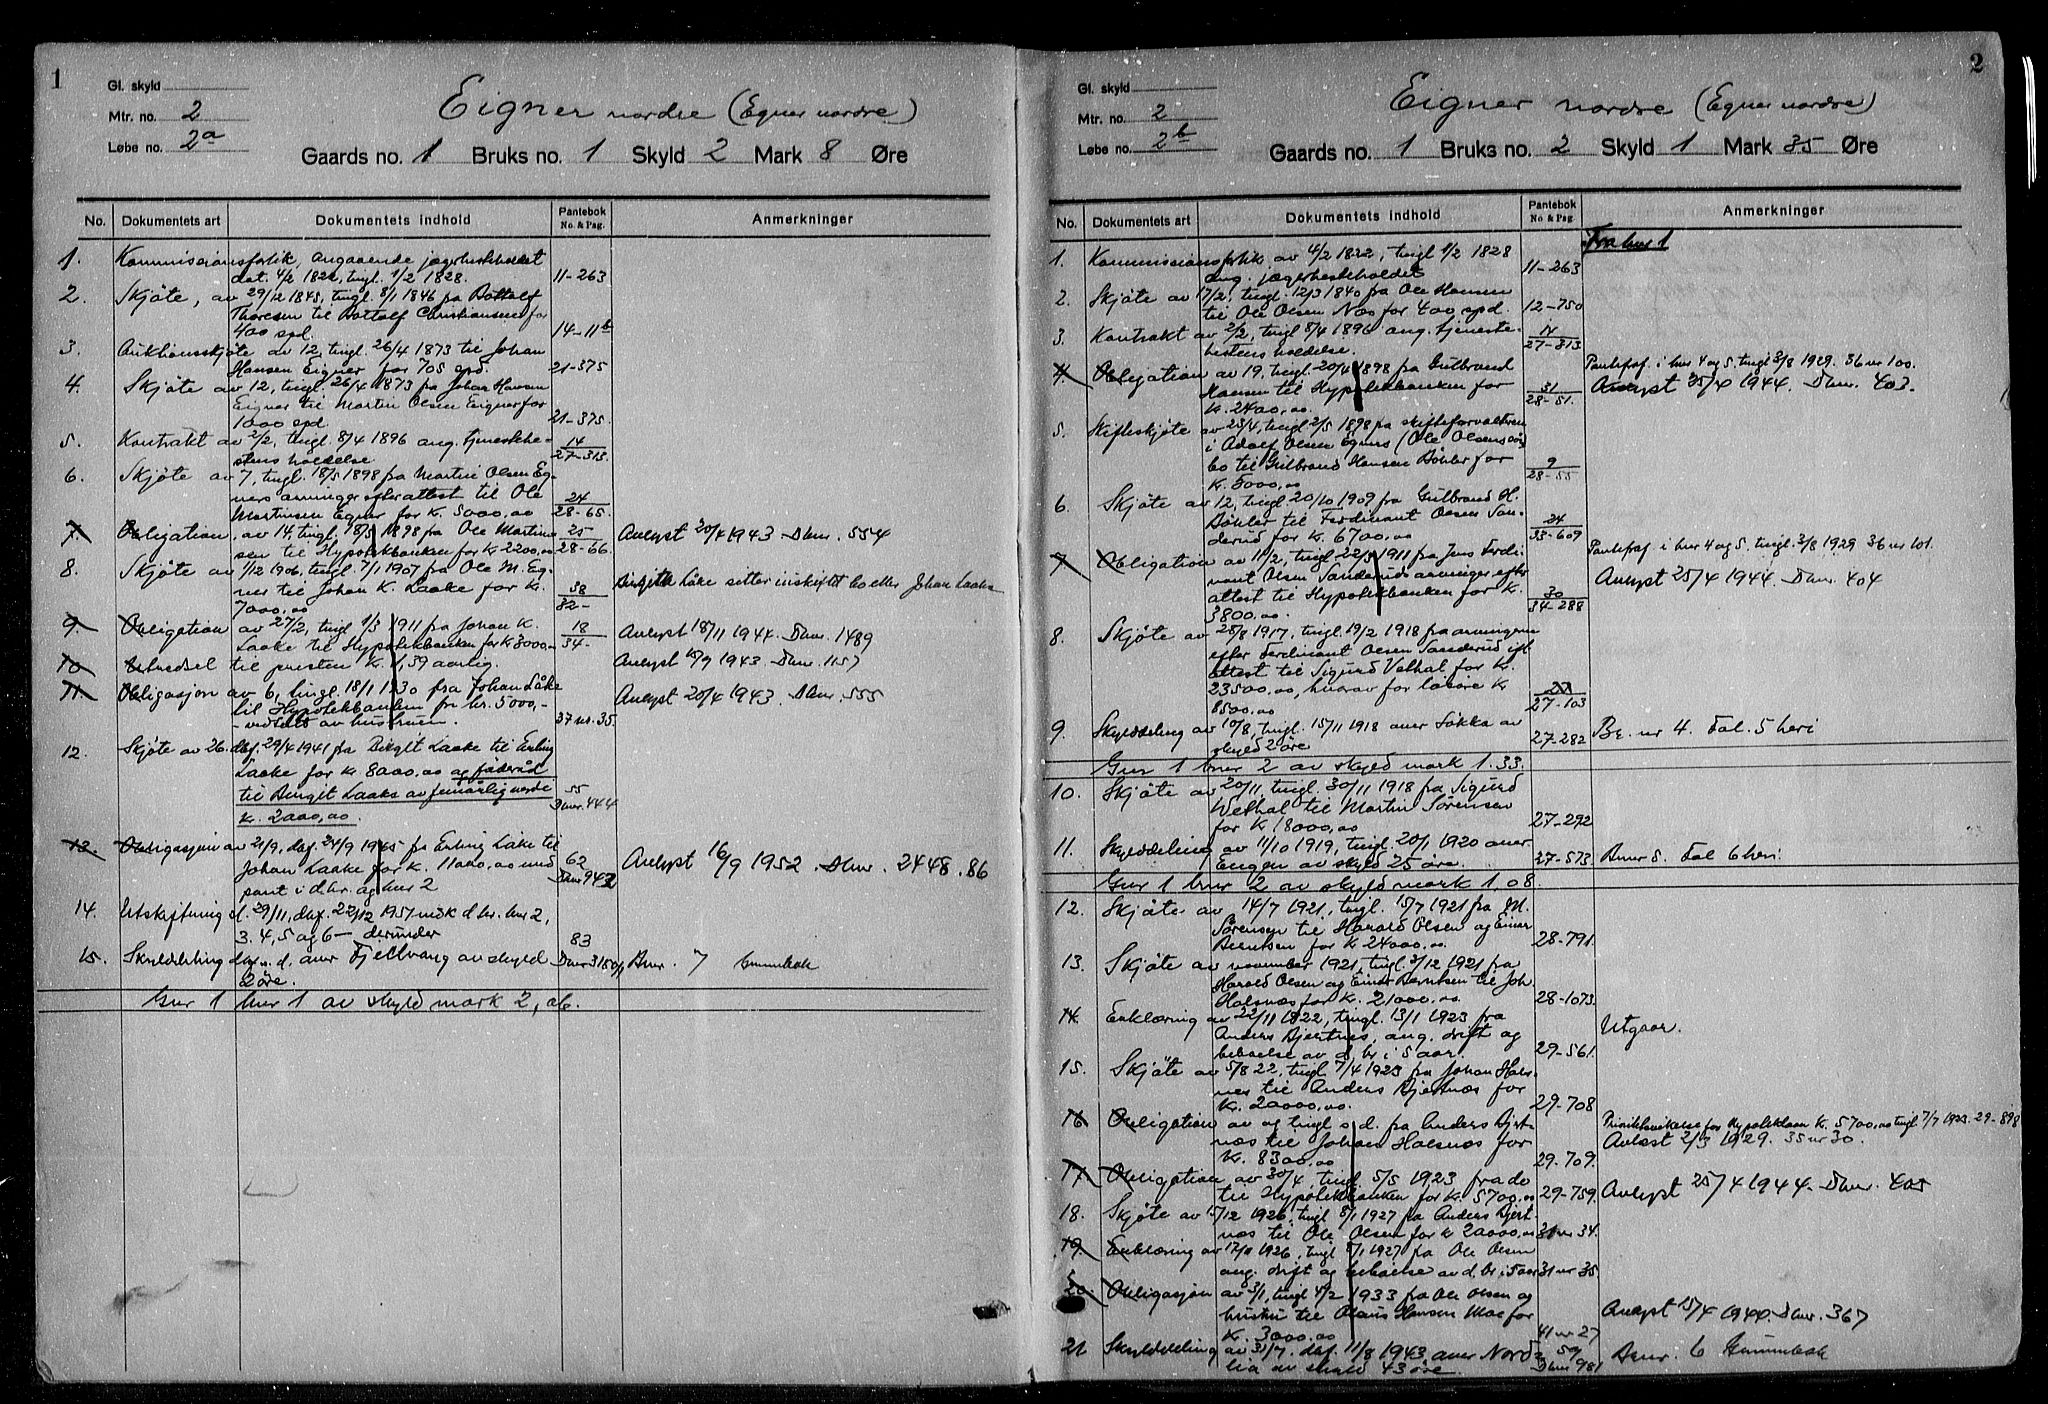 1
Gl. skyld
Mtr. no. 2
Løbe no. 2a
Eigner nordre (Egner nordre)
Gaards no. 1 Bruks no. 1 Skyld 2 Mark 8 Øre
No. Dokumentets art Dokumentets indhold Pantebok No. & Pag. Anmerkninger
1. Kommissionsforlik, angaaende jægerhesteholdet
dat. 4/2 1822, tingl. 1/2 1828. 11-263
2. Skjöte, av 29/12 1845, tingl. 8/1 1846 fra Bottolf
Thoresen til Bottolf Christiansen for
400 spd. 14-11b
3. Auktionsskjöte av 12, tingl. 26/4 1873 til Johan
Hansen Eigner for 705 spd. 21-375
4. Skjöte av 12, tingl. 26/4 1873 fra Johan Hansen
Eigner til Martin Olsen Eigner for
1000 spd. 21-375.
5. Kontrakt av 2/2, tingl. 8/4 1896 ang. tjenestehe-
stens holdelse. 14 27-313.
6. Skjöte av 7, tingl. 18/5 1898 fra Martin Olsen Eg-
ners arvinger efter attest til Ole
Martinsen Egner for K. 5000,00 24 28-65.
7. Obligation, av 14, tingl. 18/5 1898 fra Ole Martin-
sen til Hypotekbanken for K 2200,00 25 28-66. Avlyst 20/4 1943. Dbnr. 554
8. Skjöte av 1/12 1906, tingl. 7/1 1907 fra Ole M. Eg-
ner til Johan K. Laake for K.
7000,00 38 32- Birgith Låke sitter i uskiftet bo efter Johan Laake
9. Obligation av 27/2, tingl. 1/3 1911 fra Johan K.
Laake til Hypotekbanken for K 3000,- 18 34- Avlyst 18/11 1944. Dbnr. 1489
10. til presten K. 1,39 aarlig. Avlyst 10/9 1943. Dbnr. 1157
11. Obligasjon av 6, tingl. 18/1 1930 fra Johan Låke
til Hypotekbanken for kr. 5000,-
- vedtatt av hustruen. 37 nr. 35. Avlyst 20/4 1943. Dbnr. 555
12. Skjöte av 26. dbf. 29/4 1941 fra Birgit Laake til Erling
Laake for Kr 8000,00 og föderåd
til Birgit Laake av femårlig verde
K. 2000,00. 55 Dbnr. 444
13. Obligasjon av 21/9, dbf. 24/9 1945 fra Erling Låke til
Johan Laake for K. 11000,00 med
pant i d.br. og bnr 2 62 Dbnr 942 Avlyst 16/9 1952. Dbnr. 2448.86
14. Utskiftning sl. 29/11, dbf. 22/12 1951 m.k d.br. bnr 2,
3. 4, 5 og 6 - derunder 83
15. Skylddeling dbf s.d. over Fjellvang av skyld
2 öre. Dbnr 3150 Bnr. 7 Grunnbok
Gnr 1 bnr 1 av skyld mark 2,06.
2
Gl. skyld
Mtr. no. 2
Løbe no. 2b
Eigner nordre (Egner nordre)
Gaards no. 1 Bruks no. 2 Skyld 1 Mark 35 Øre
No. Dokumentets art Dokumentets indhold Pantebok No & Pag. Anmerkninger
Fra bnr 1
1. Kommissionsforlik av 4/2 1822, tingl 1/2 1828
ang. jægerhesteholdet 11-263
2. Skjöte av 17/2, tingl. 12/3 1840 fra Ole Hansen
til Ole Olsen Næs for 400 spd. 12-750
3. Kontrakt av 2/2, tingl 8/4 1896 ang. tjeneste-
hestens holdelse. 14 27-313.
4. Obligation av 19, tingl. 20/4 1898 fra Gulbrand
Hansen til Hypotekbanken for
K. 2400,00. 31 28-51. Pantefraf. i bnr 4 og 5, tingl 3/8 1929. 36 nr 100.
Avlyst 25/4 1944. Dbnr. 403.
5. Skifteskjöte av 23/4, tingl 2/5 1898 fra skifteforvalteren
i Adolf Olsen Egners (Ole Olsens) 
bo til Gulbrand Hansen Böhler for
K. 5000,00. 9 28-55
6. Skjöte av 12, tingl 20/10 1909 fra Gulbrand H.
Böhler til Ferdinant Olsen San-
derud for K. 6700,00 24 33-609
7. Obligation av 11/2, tingl 22/5 1911 fra Jens Ferdi-
nant Olsen Sanderuds arvinger efter
attest til Hypotekbanken for K.
3800,00. 30 34-288 Pantefraf i bnr 4 og 5. tingl. 3/8 1929 36 nr 101.
Avlyst 25/4 1944. Dbnr. 404
8. Skjöte av 28/8 1917, tingl. 19/2 1918 fra arvingerne
efter Ferdinant Olsen Sanderud ifl
attest til Sigurd Vethal for K.
23500,00, hvorav for lösöre K
8500,00 27-103
9. Skylddeling av 10/8, tingl. 15/11 1918 over Lökka av
skyld 2 öre 27-282 Br. nr 4. Fol. 5 heri
Gnr 1 bnr 2 av skyld mark 1.33.
10. Skjöte av 20/11, tingl. 30/11 1918 fra Sigurd
Wethal til Martin Sörensen
for K. 18000,00 27-292
11. Skylddeling av 11/10 1919, tingl. 20/1 1920 over
Engen av skyld 25 öre. 27-573 Bnr 5. Fol 6 heri.
Gnr 1 bnr 2 av skyld mark 1.08.
12. Skjöte av 14/7 1921, tingl. 15/7 1921 fra M.
Sörensen til Harald Olsen og Einar
Berntsen for K 24000,00 28-791
13. Skjöte av november 1921, tingl. 3/12 1921 fra
Harald Olsen og Einar Berntsen til Joh.
Halsnæs for K. 21000,00. 28-1073.
14. Erklæring av 22/11 1922, tingl. 13/1 1923 fra
Anders Bjertnes, ang. drift og
beboelse av d.br. i 5 aar. 29-561. Utgaar.
15. Skjöte av 5/8 22, tingl 7/4 1923 fra Johan Hals-
nes til Anders Bjertnæs for
Kr. 20000,00. 29-708
16 Obligation av og tingl s.d. fra Anders Bjert-
næs til Johan Halsnæs for
Kr. 8300,00 29-709. Prioritetsvikelse for Hypoteklaan K. 5700,00 tingl 7/7 1923. 29-898
Avlæst 2/3 1929. 35 nr 30.
17. Obligation av 30/4, tingl. 5/5 1923 fra do
til Hypotekbanken for K. 5700,00 29-759. Avlyst 25/4 1944. Dbnr. 405
18. Skjöte av 15/12 1926, tingl 8/1 1927 fra Anders Bjert-
næs til Ole Olsen for K 20000,00 31 nr 34.
19. Erklæring av 17/11 1926, tingl 8/1 1927 fra Ole Olsen
ang. drift og beboelse av d.br. i 5 aar 31 nr 35.
20. Obligasjon av 3/1, tingl 4/2 1933 fra Ole Olsen og
hustru til Olaus Hansen Moe for
K. 3000,00 41 nr 27 Avlyst 15/4 1940. Dbnr. 367
21 Skylddeling av 31/7. dbf. 11/8 1943 over Nord-
lia av skyld 43 öre. 59 Dbnr 981 Bnr. 6 Grunnbok